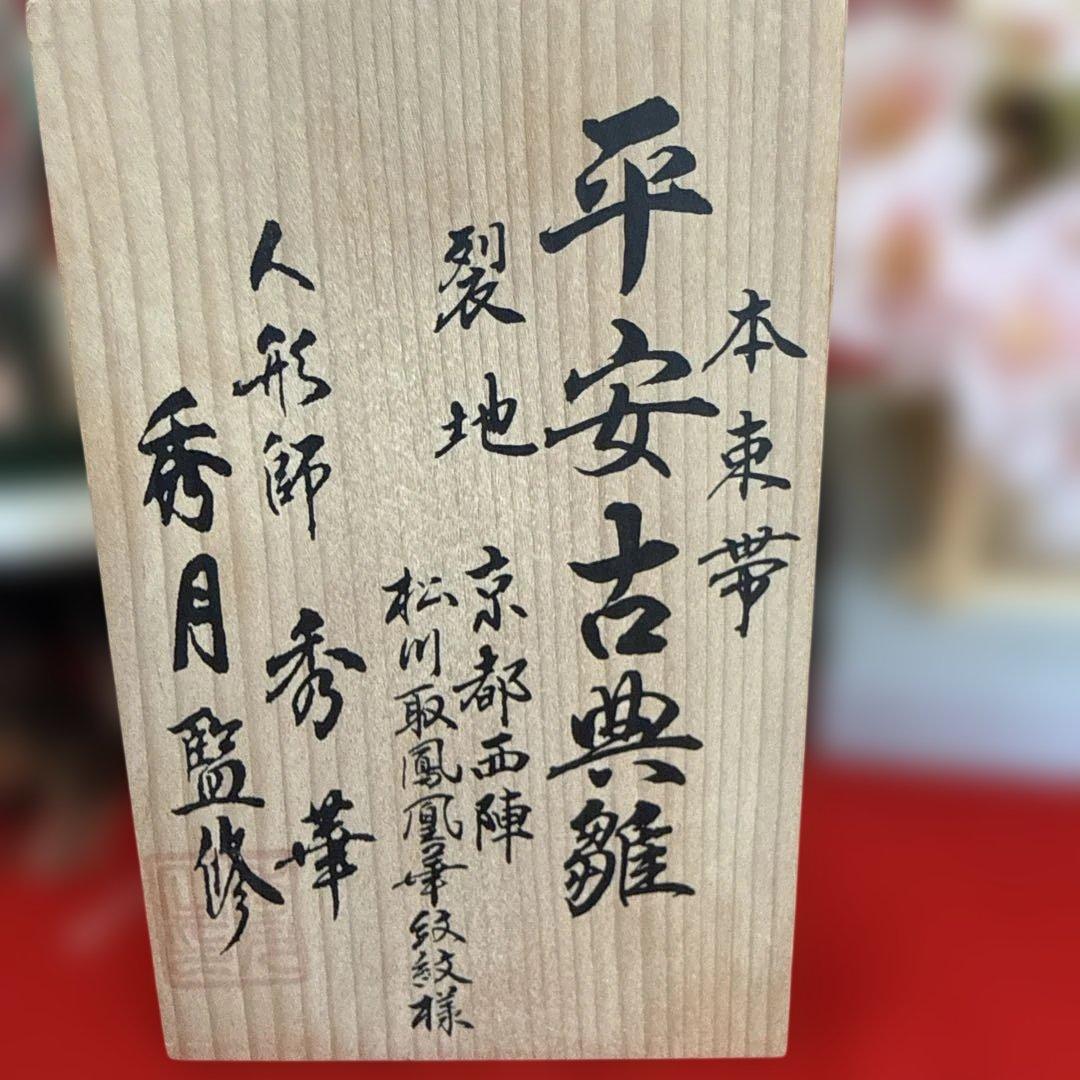 本東帯
平安古典雛
裂地
京都西陣
松川取鳳凰華紋紋様
人形師 秀華
秀月監修